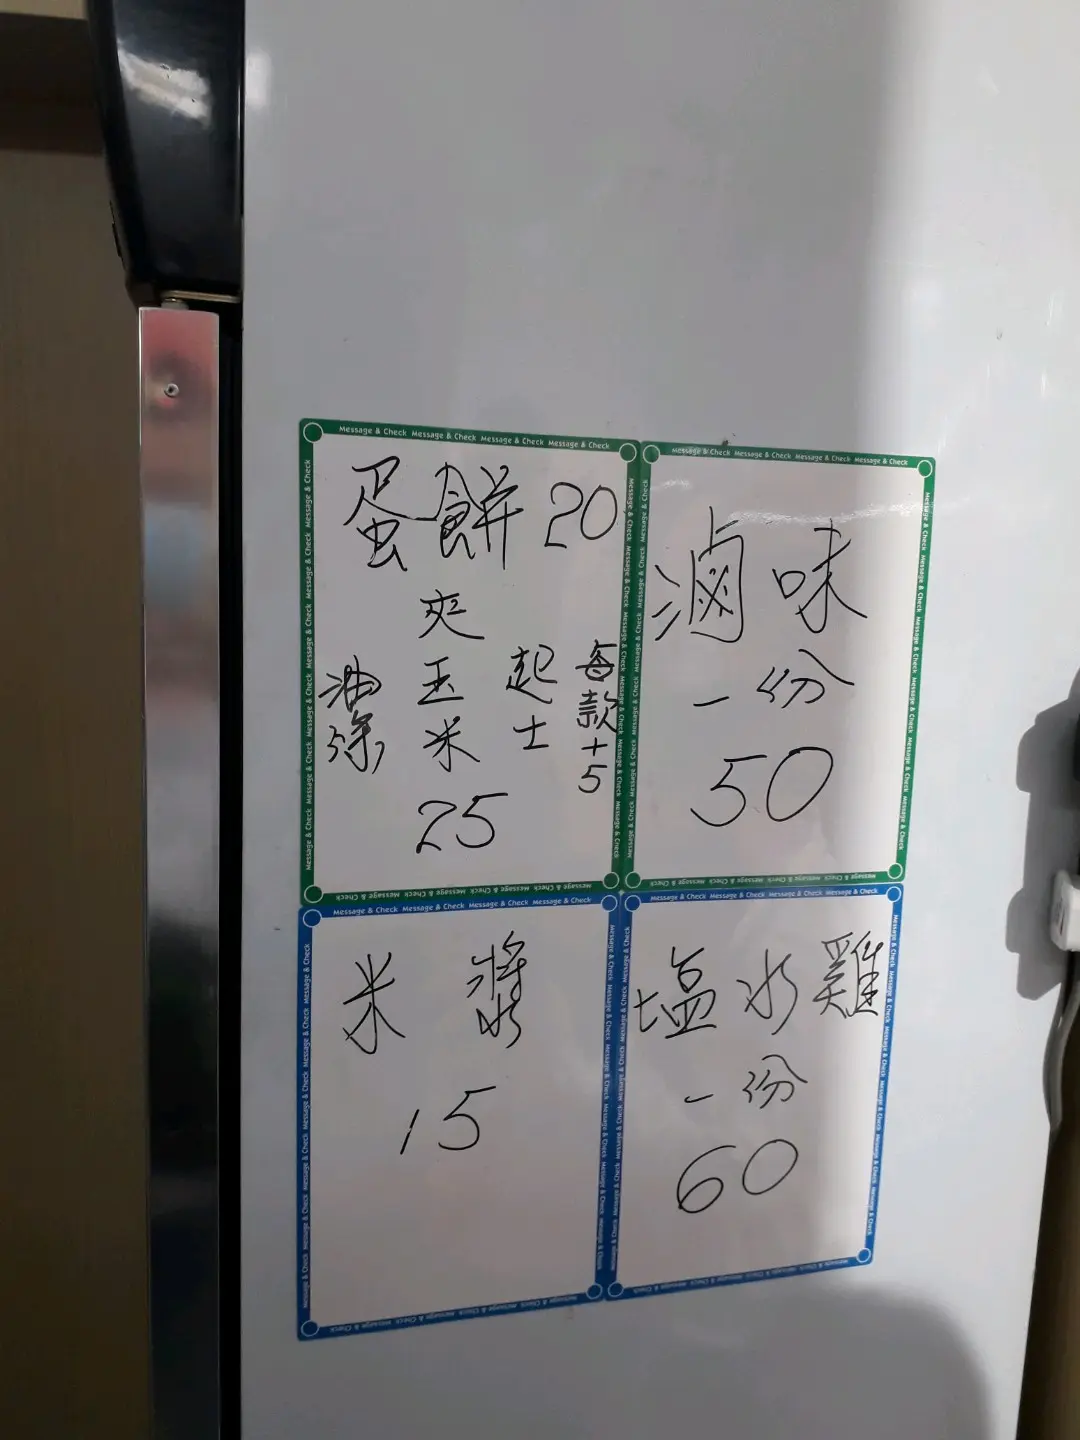 Message & Check Message & Check Message & Check Message & Check
蛋餅 20
夾
油條
玉米
起士
每款+5
25
Message & Check Message & Check Message & Check Message & Check
滷味
一份
50
Message & Check Message & Check Message & Check Message & Check
米漿
15
Message & Check Message & Check Message & Check Message & Check
塩水雞
一份
60